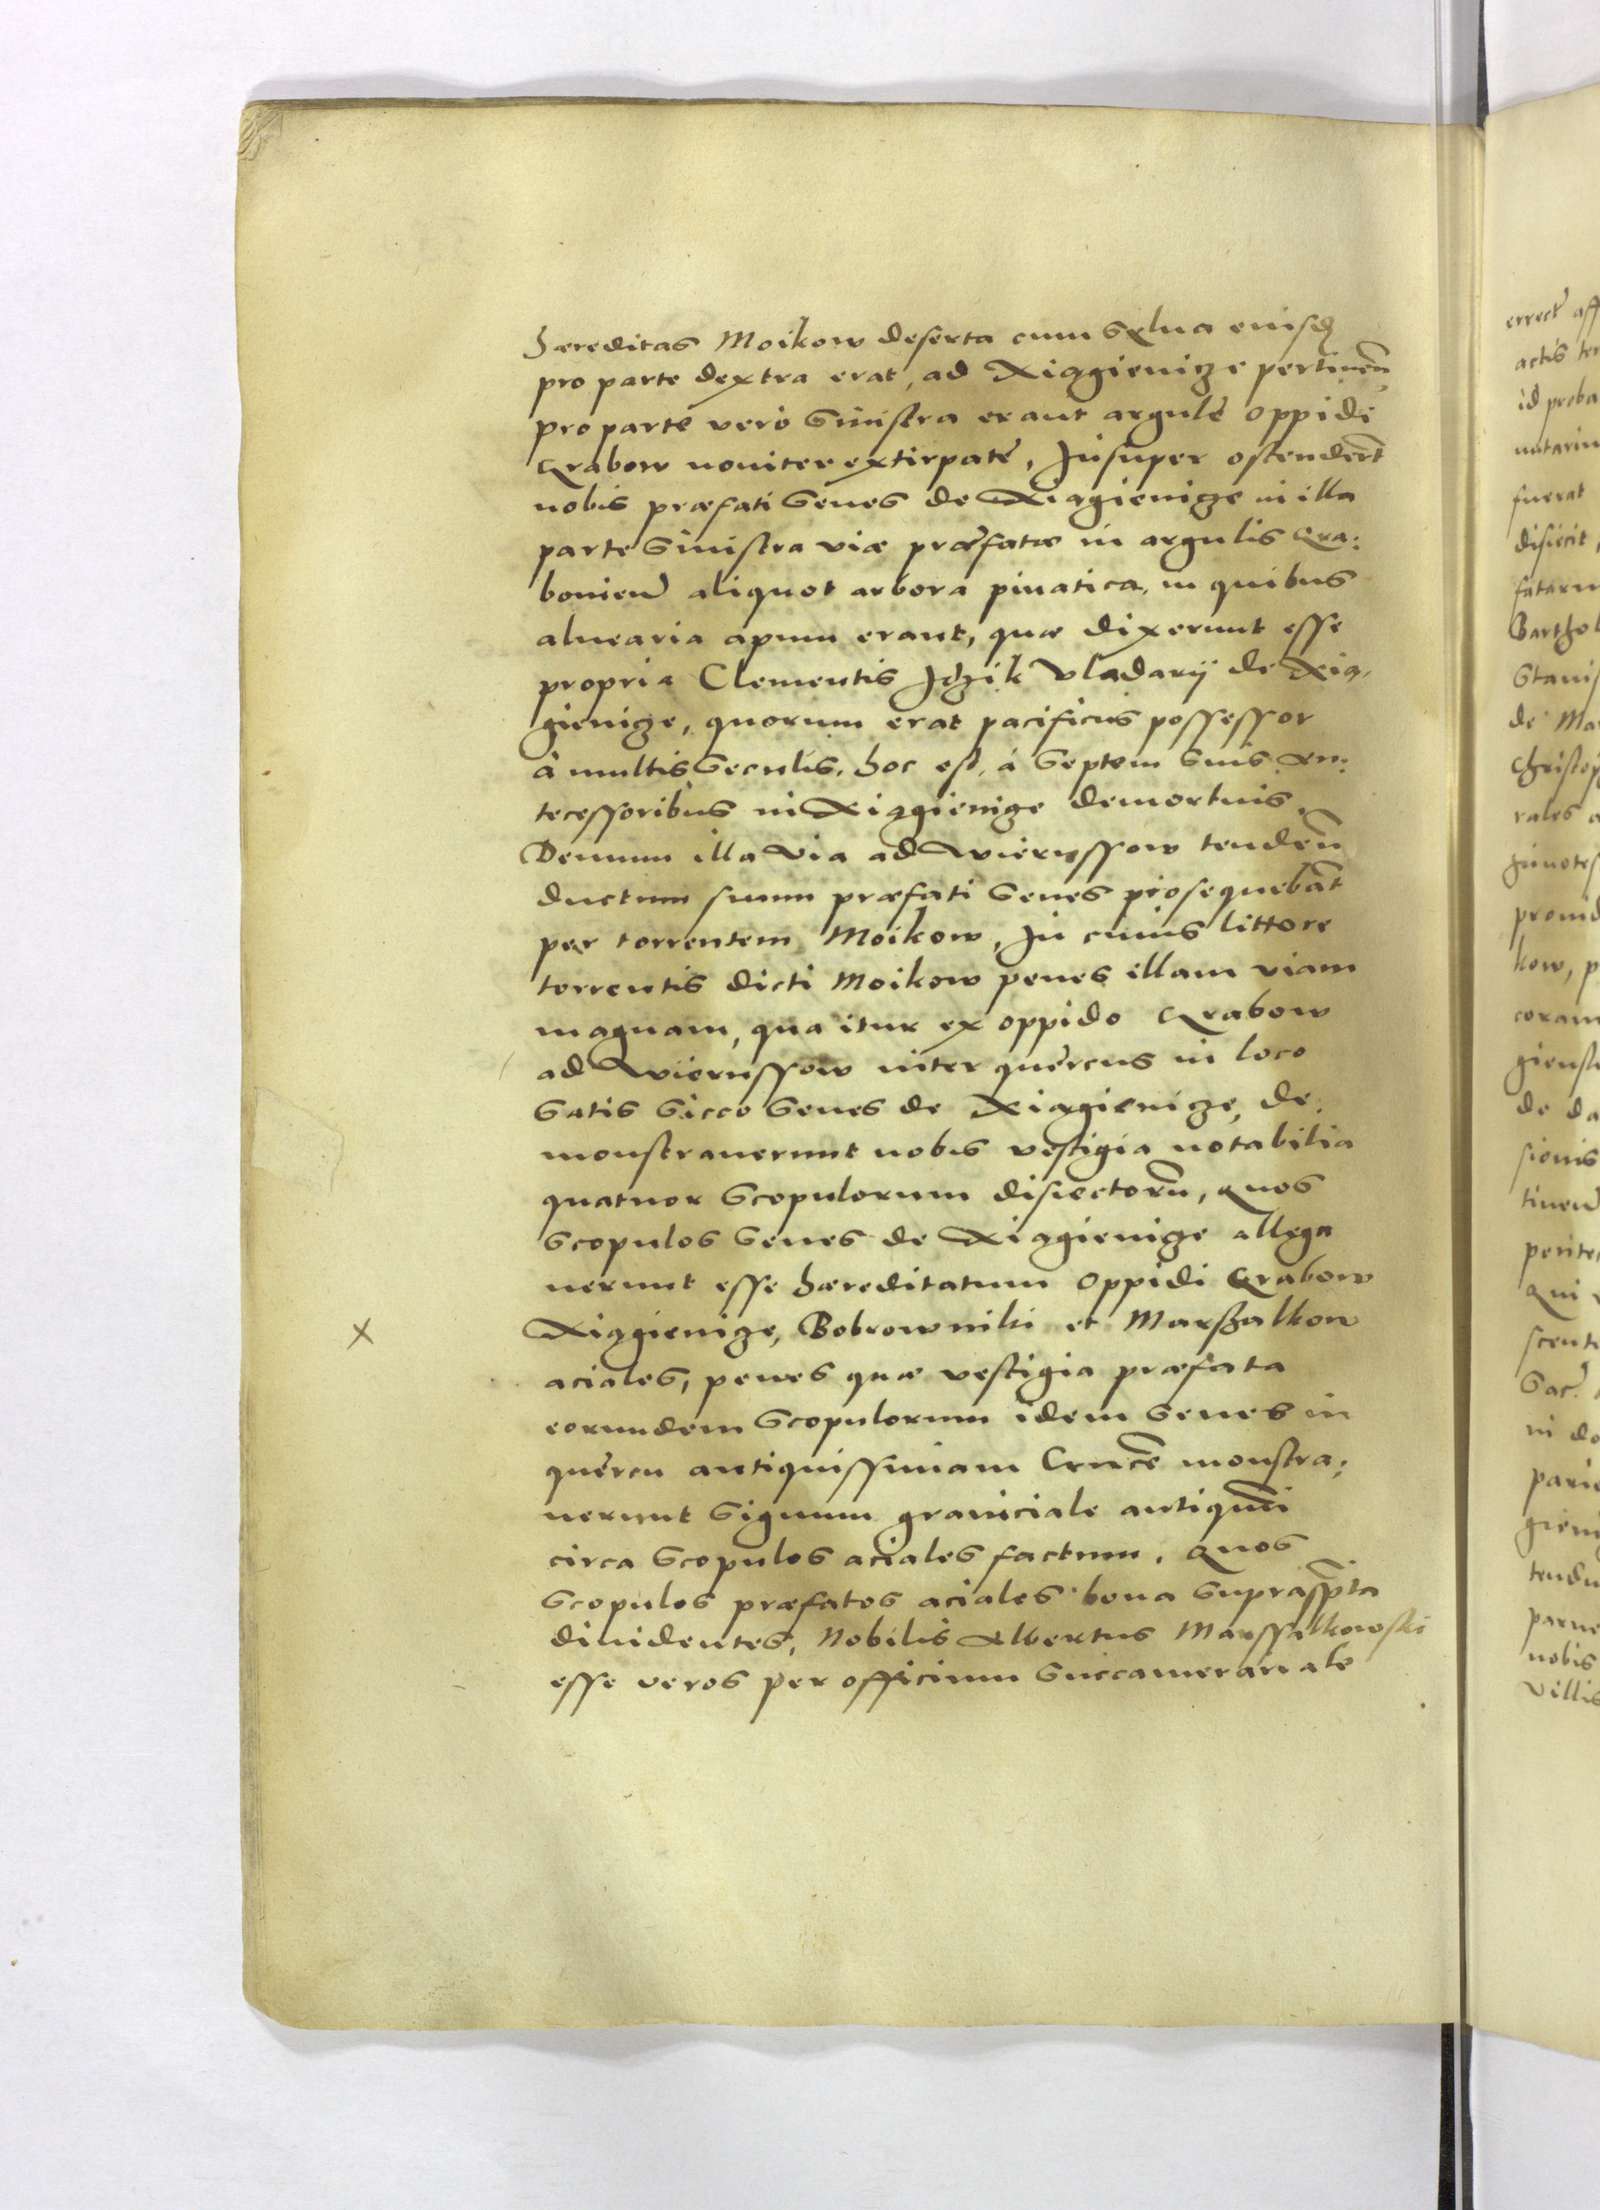 Hæreditas Moikow deserta cum Sylua eiusdē
pro parte dextra erat, ad Xiągienicze pertinēn̄
pro parte verò Sinistra erant argulę oppidi
Grabow nouiter extirpatę, Insuper ostenderūt
nobis præfati Senes de Xiągienicze in illa
parte Sinistra viæ præfatæ in argulis Gra:
bouień aliquot arbora piuatica, in quibus
aluearia apum erant, quæ dixerunt esse
propria Clementis Idzik Vladarij de Xią,
gienicze, quorum erat pacificus possessor
à multis Seculis, hoc est, à Septem Suis An:
tecessoribus in Xiągienicze demortuis,
Demum illa via ad Wierussow tendēn
ductum suum præfati Senes prosequebāt
per torrentem Moikow, In cuius littore
torrentis dicti Moikow penes illam viam
magnam, qua itur ex oppido Grabow
ad Wierussow inter quercus in loco
Satis Sicco Senes de Xiągienicze, de:
monstrauerunt nobis vestigia notabilia
quatuor Scopulorum disiectorū, Quos
Scopulos Senes de Xiągienicze allega
uerunt esse hæreditatum oppidi Grabow
Xiągienicze, Bobrowniki et Marszalkow
aciales, penes quæ vestigia præfata
eorundem Scopulorum idem Senes in
quercu antiquissimam Crucē monstra:
uerunt Signum graniciale antiquūm
circa Scopulos aciales factum, Quos
Scopulos præfatos aciales bona Suprasc̄pta
diuidentes, Nobilis Albertus Marssalkowski
esse veros per officium Succamerariale
X
errect aff
actis te
id proba
fuerat
disiecit
Barthol
Stanis
de Ma
Christop
rales a
kow, p
coram
de da
sionis
Qui
in do
nobis
Villis